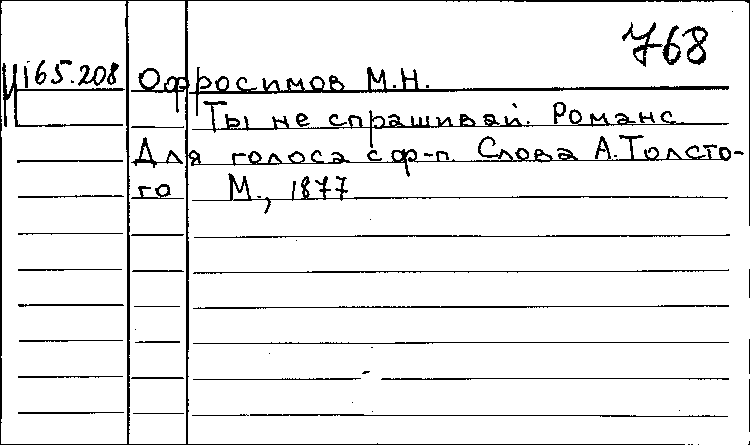 768
И 165.208 Офросимов М.Н.
Ты не спрашивай. Романс.
Для голоса с ф-п. Слова А. Толсто-
го М., 1877